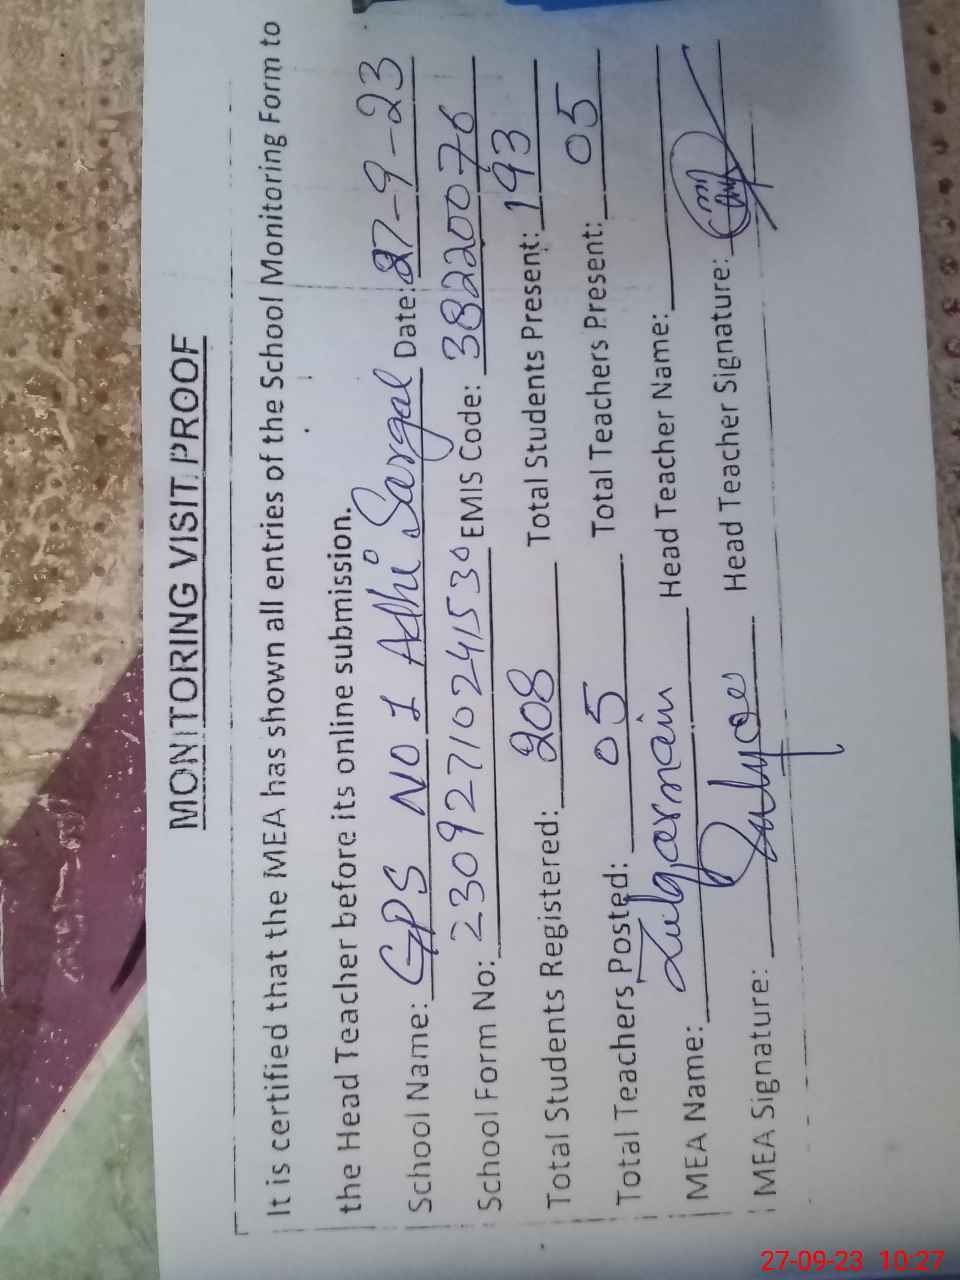 MONITORING VISIT PROOF
It is certified that the MEA has shown all entries of the School Monitoring Form to
the Head Teacher before its online submission.
School Name: GPS NO 1 Adhi Sargal Date: 27-9-23
School Form No: 23092710241530 EMIS Code: 38220076
Total Students Registered: 208 Total Students Present: 193
Total Teachers Posted: 05 Total Teachers Present: 05
MEA Name: Zulqarnain Head Teacher Name:
MEA Signature: Head Teacher Signature:
27-09-23 10:27